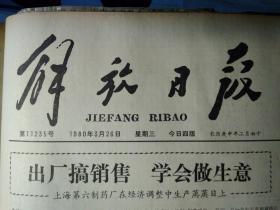 解放日报
JIEFANG RIBAO
第11235号 1980年3月26日 星期三 今日四版 农历庚申年二月初十
出厂搞销售 学会做生意
上海第六制药厂在经济调整中生产蒸蒸日上